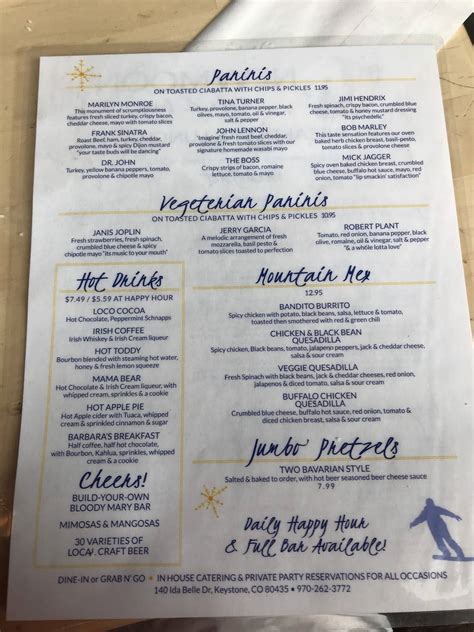 Paninis
ON TOASTED CIABATTA WITH CHIPS & PICKLES 11.95
MARILYN MONROE
This monument of scrumptiousness
features fresh sliced turkey, crispy bacon,
cheddar cheese, mayo with tomato slices
FRANK SINATRA
Roast Beef, ham, turkey, cheddar,
tomato, mayo & spicy Dijon mustard
"your taste buds will be dancing"
DR. JOHN
Turkey, yellow banana peppers, tomato,
provolone & chipotle mayo
TINA TURNER
Turkey, provolone, banana pepper, black
olives, mayo, tomato, oil & vinegar,
salt & pepper
JOHN LENNON
'Imagine' fresh roast beef, cheddar,
provolone & tomato slices with our
signature homemade wasabi mayo
THE BOSS
Crispy strips of bacon, romaine
lettuce, tomato & mayo
JIMI HENDRIX
Fresh spinach, crispy bacon, crumbled blue
cheese, tomato & honey mustard dressing
"its psychedelic"
BOB MARLEY
This taste sensation features our oven
baked herb chicken breast, basil-pesto
tomato, provolone slices & provolone cheese
MICK JAGGER
Spicy oven baked chicken breast, crumbled
blue cheese, buffalo hot sauce, mayo, red
onion, tomato "lip smackin' satisfaction"
Vegeterian Paninis
ON TOASTED CIABATTA WITH CHIPS & PICKLES 10.95
JANIS JOPLIN
Fresh strawberries, fresh spinach,
crumbled blue cheese & spicy
chipotle mayo "its music to your mouth"
JERRY GARCIA
A melodic arrangement of fresh
mozzarella, basil pesto &
tomato slices to complete this tasty jam
ROBERT PLANT
Tomato, red onion, banana pepper, black
olive, romaine, oil & vinegar, salt & pepper
"& a whole lotta love"
Hot Drinks
$7.49 / $5.59 AT HAPPY HOUR
LOCO COCOA
Hot Chocolate, Peppermint Schnapps
IRISH COFFEE
Irish Whiskey & Irish Cream liqueur
HOT TODDY
Bourbon blended with steaming hot water,
honey & fresh lemon squeeze
MAMA BEAR
Hot Chocolate & Irish Cream liqueur, with
whipped cream & shaved chocolate
HOT APPLE PIE
Hot Apple cider with Tuaca, whipped
cream & sprinkled cinnamon & sugar
BARBARA'S BREAKFAST
Half coffee, half hot chocolate,
with Bourbon, Kahlua, sprinkles, whipped
cream & a cookie
Cheers!
BUILD-YOUR-OWN
BLOODY MARY BAR
MIMOSAS & MANGOSAS
30 VARIETIES OF
LOCAL CRAFT BEER
Mountain Mex
12.95
BANDITO BURRITO
Spicy chicken with potato, black beans, salsa, lettuce & tomato,
toasted then smothered with red & green chili
CHICKEN & BLACK BEAN
QUESADILLA
Spicy chicken, Black beans, tomato, jalapeno peppers, jack & cheddar cheese,
salsa & sour cream
VEGGIE QUESADILLA
Fresh Spinach with black beans, jack & cheddar cheeses, red onion,
jalapenos & diced tomato, salsa & sour cream
BUFFALO CHICKEN
QUESADILLA
Crumbled blue cheese, buffalo hot sauce, red onion, tomato &
diced chicken breast, salsa & sour cream
Jumbo Pretzels
TWO BAVARIAN STYLE
Salted & baked to order, with hot beer seasoned beer cheese sauce
7.99
Daily Happy Hour
& Full Bar Available!
DINE-IN or GRAB N' GO • IN HOUSE CATERING & PRIVATE PARTY RESERVATIONS FOR ALL OCCASIONS
140 Ida Belle Dr, Keystone, CO 80435 • 970-262-3772